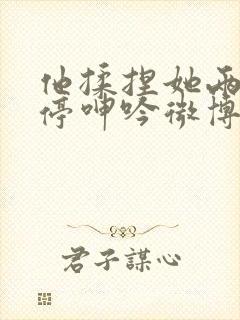 他揉捏她两
停呻吟微博
君子謀心